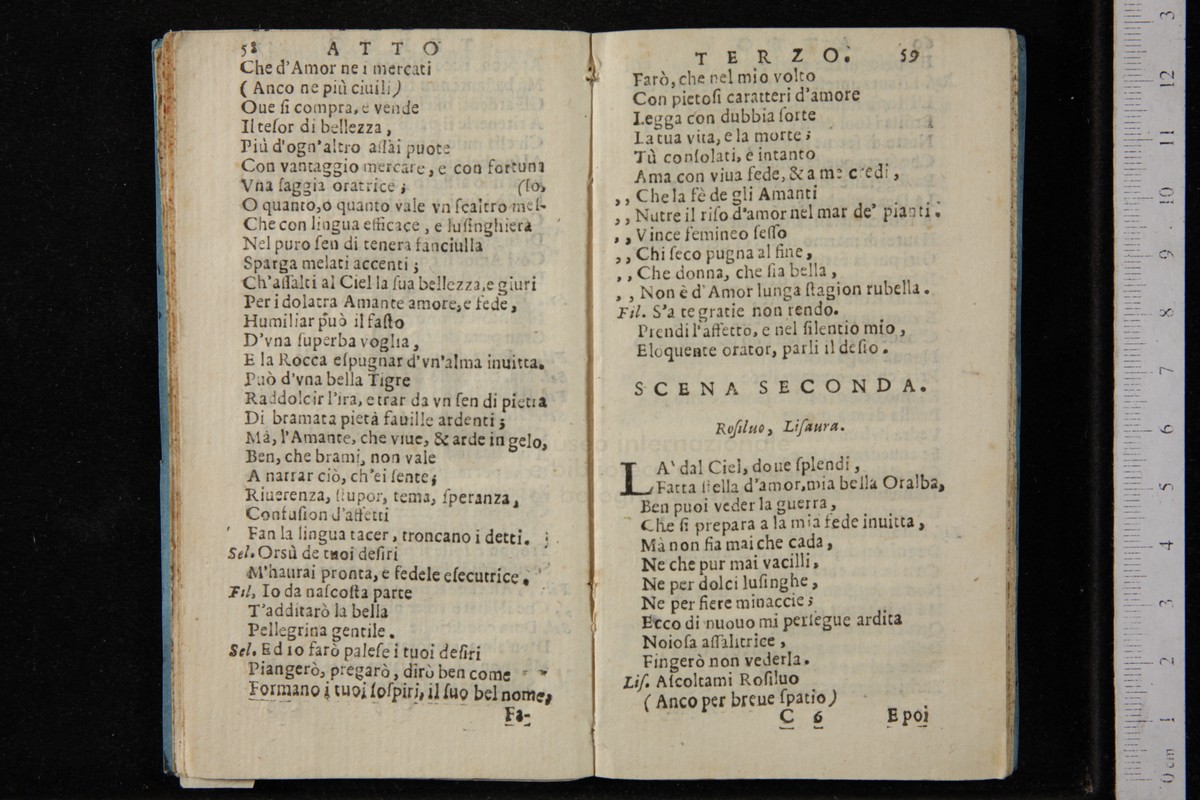 58 ATTO
Che d'Amor ne i mercati
( Anco ne più ciuili)
Oue ſi compra, e vende
Il teſor di bellezza ,
Più d'ogn'altro aſſai puote
Con vantaggio mercare, e con fortuna
Vna ſaggia oratrice ; (ſo,
O quanto, o quanto vale vn ſcaltro meſ-
Che con lingua efficace , e luſinghiera
Nel puro ſen di tenera fanciulla
Sparga melati accenti ;
Ch'aſſalti al Ciel la ſua bellezza, e giuri
Per idolatra Amante amore, e fede ,
Humiliar può il faſto
D'vna ſuperba voglia ,
E la Rocca eſpugnar d'vn'alma inuitta.
Può d'vna bella Tigre
Raddolcir l'ira, e trar da vn ſen di pietra
Di bramata pietà fauille ardenti ;
Mà, l'Amante, che viue, & arde in gelo,
Ben, che brami, non vale
A narrar ciò, ch'ei ſente;
Riuerenza, ſtupor, tema, ſperanza,
Confuſion d'affetti
Fan la lingua tacer, troncano i detti.
Sel. Orsù de tuoi deſiri
M'haurai pronta, e fedele eſecutrice.
Fil. Io da naſcoſta parte
T'additarò la bella
Pellegrina gentile.
Sel. Ed io farò paleſe i tuoi deſiri
Piangerò, pregarò, dirò ben come
Formano i tuoi ſoſpiri, il ſuo bel nome,
Fa-
TERZO. 59
Farò, che nel mio volto
Con pietoſi caratteri d'amore
Legga con dubbia ſorte
La tua vita, e la morte ;
Tù conſolati, e intanto
Ama con viua fede, & a me credi ,
,, Che la fè de gli Amanti
,, Nutre il riſo d'amor nel mar de' pianti .
,, Vince femineo ſeſſo
,, Chi ſeco pugna al fine,
,, Che donna, che ſia bella ,
,, Non è d'Amor lunga ſtagion rubella.
Fil. S'a te gratie non rendo.
Prendi l'affetto, e nel ſilentio mio ,
Eloquente orator, parli il deſio.
SCENA SECONDA.
Roſiluo, Liſaura.
LA' dal Ciel, doue ſplendi ,
Fatta ſtella d'amor, mia bella Oralba,
Ben puoi veder la guerra ,
Che ſi prepara a la mia fede inuitta ,
Mà non fia mai che cada ,
Ne che pur mai vacilli,
Ne per dolci luſinghe ,
Ne per fiere minaccie ;
Ecco di nuouo mi perſegue ardita
Noioſa aſſalitrice ,
Fingerò non vederla.
Liſ. Aſcoltami Roſiluo
( Anco per breue ſpatio)
C 6 E poi